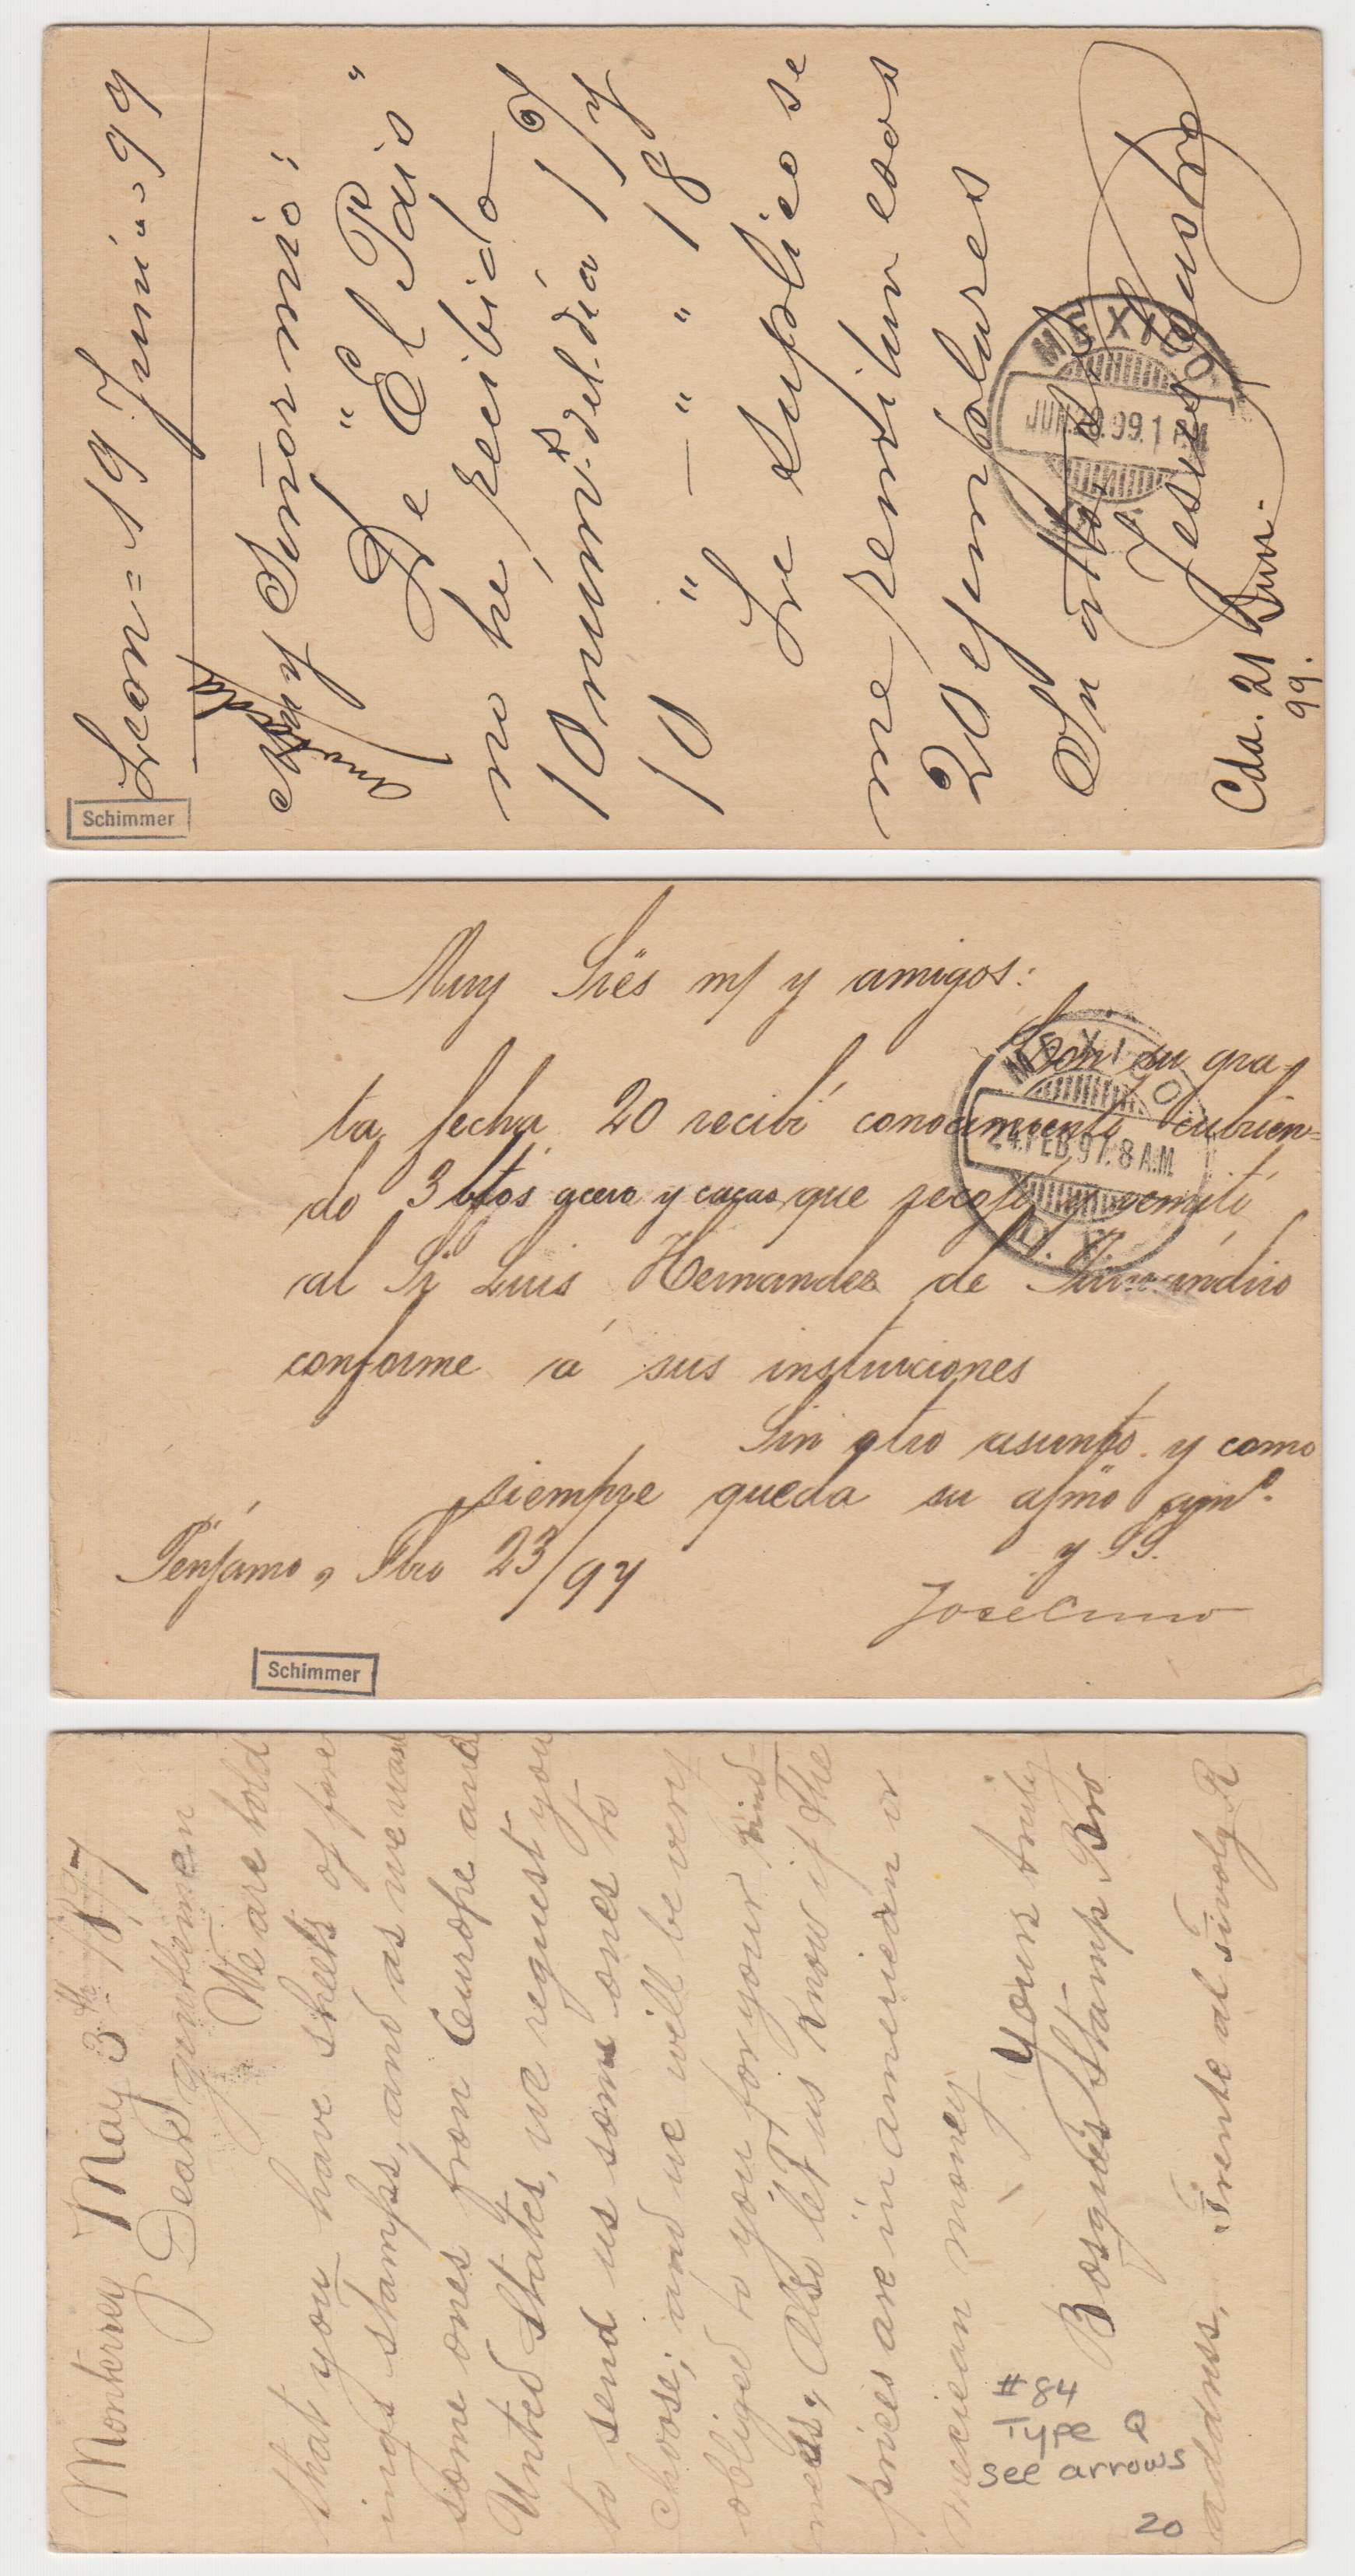 Leon = 19 Junio = 99
Muy Señor mío:
"El País"
De
no he recibido
10 núms. del día 17 y
10 " — " " 18
Le suplico se
me remitan esos
20 ejemplares
Su atto.
Jesus
Cda. 21 Jun.
99.
MEXICO
JUN. 99. 1 P.M.
Schimmer
Muy Sres m/ y amigos:
Con su gra-
ta fecha 20 recibí conocimiento cubrien-
do 3 btos acero y cacao que recojí y remití
al Sr Luis Hernandez de
conforme á sus instruciones
Sin otro asunto y como
siempre queda su afmo amo.
y SS.
Pénjamo, Fbro 23/97
Jose
MEXICO
24. FEB. 97. 8 A.M.
D. F.
Schimmer
Monterrey May 3th /87
Dear gentlemen
We are told
that you have sheets of fore
ings stamps, and as we want
some ones from Europe and
United States, we request you
to send us some ones to
choose; and we will be very
obliged to you for your kind-
ness, Also let us know if the
prices are in american or
mecican money
Yours truly
Bosques Stamp Bro
address, Frente al
#84
Type Q
see arrows
20